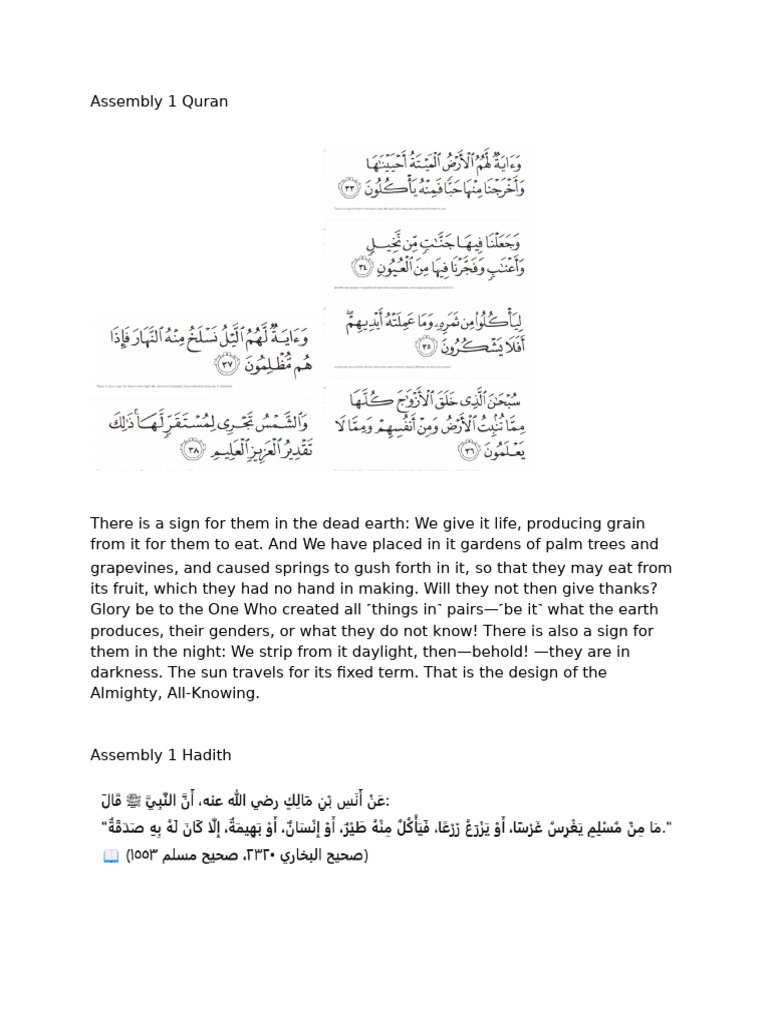 Assembly 1 Quran
وَءَايَةٌ لَّهُمُ ٱلْأَرْضُ ٱلْمَيْتَةُ أَحْيَيْنَٰهَا
وَأَخْرَجْنَا مِنْهَا حَبًّا فَمِنْهُ يَأْكُلُونَ ٣٣
وَجَعَلْنَا فِيهَا جَنَّٰتٍ مِّن نَّخِيلٍ
وَأَعْنَٰبٍ وَفَجَّرْنَا فِيهَا مِنَ ٱلْعُيُونِ ٣٤
لِيَأْكُلُوا۟ مِن ثَمَرِهِۦ وَمَا عَمِلَتْهُ أَيْدِيهِمْ ۖ
أَفَلَا يَشْكُرُونَ ٣٥
سُبْحَٰنَ ٱلَّذِى خَلَقَ ٱلْأَزْوَٰجَ كُلَّهَا
مِمَّا تُنۢبِتُ ٱلْأَرْضُ وَمِنْ أَنفُسِهِمْ وَمِمَّا لَا
يَعْلَمُونَ ٣٦
وَءَايَةٌ لَّهُمُ ٱلَّيْلُ نَسْلَخُ مِنْهُ ٱلنَّهَارَ فَإِذَا
هُم مُّظْلِمُونَ ٣٧
وَٱلشَّمْسُ تَجْرِى لِمُسْتَقَرٍّ لَّهَا ۚ ذَٰلِكَ
تَقْدِيرُ ٱلْعَزِيزِ ٱلْعَلِيمِ ٣٨
There is a sign for them in the dead earth: We give it life, producing grain
from it for them to eat. And We have placed in it gardens of palm trees and
grapevines, and caused springs to gush forth in it, so that they may eat from
its fruit, which they had no hand in making. Will they not then give thanks?
Glory be to the One Who created all ˹things in˺ pairs—˹be it˺ what the earth
produces, their genders, or what they do not know! There is also a sign for
them in the night: We strip from it daylight, then—behold! —they are in
darkness. The sun travels for its fixed term. That is the design of the
Almighty, All-Knowing.
Assembly 1 Hadith
عَنْ أَنَسِ بْنِ مَالِكٍ رضي الله عنه، أَنَّ النَّبِيَّ ﷺ قَالَ:
"مَا مِنْ مُسْلِمٍ يَغْرِسُ غَرْسًا، أَوْ يَزْرَعُ زَرْعًا، فَيَأْكُلُ مِنْهُ طَيْرٌ، أَوْ إِنْسَانٌ، أَوْ بَهِيمَةٌ، إِلَّا كَانَ لَهُ بِهِ صَدَقَةٌ."
(صحيح البخاري ٢٣٢٠، صحيح مسلم ١٥٥٣) 📖